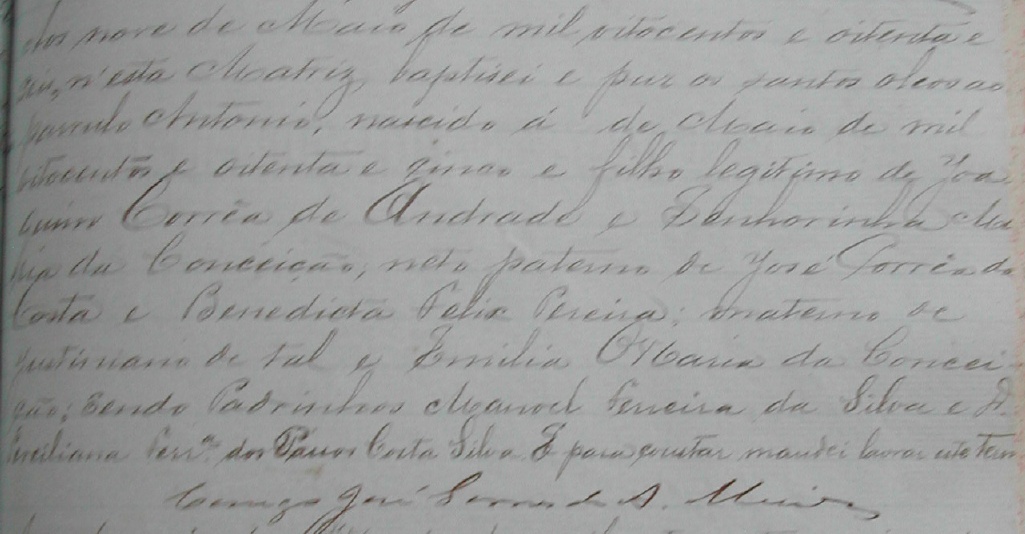 dos nove de Maio de mil oitocentos e oitenta e
n'esta Matriz, baptisei e puz os santos oleos ao
parvulo Antonio, nascido á de Maio de mil
oitocentos e oitenta e sinco e filho legitimo de Joa
quim Corrêa de Andrade e Senhorinha Ma
ria da Conceição, neto paterno de José Corrêa da
Costa e Benedicta Felix Pereira; materno de
Justiniano de tal e Emilia Maria da Concei
ção; sendo Padrinhos Manoel Ferreira da Silva e D.
Ferr.ª dos Passos Costa Silva E para constar mandei lavrar este term
Conego José de A.